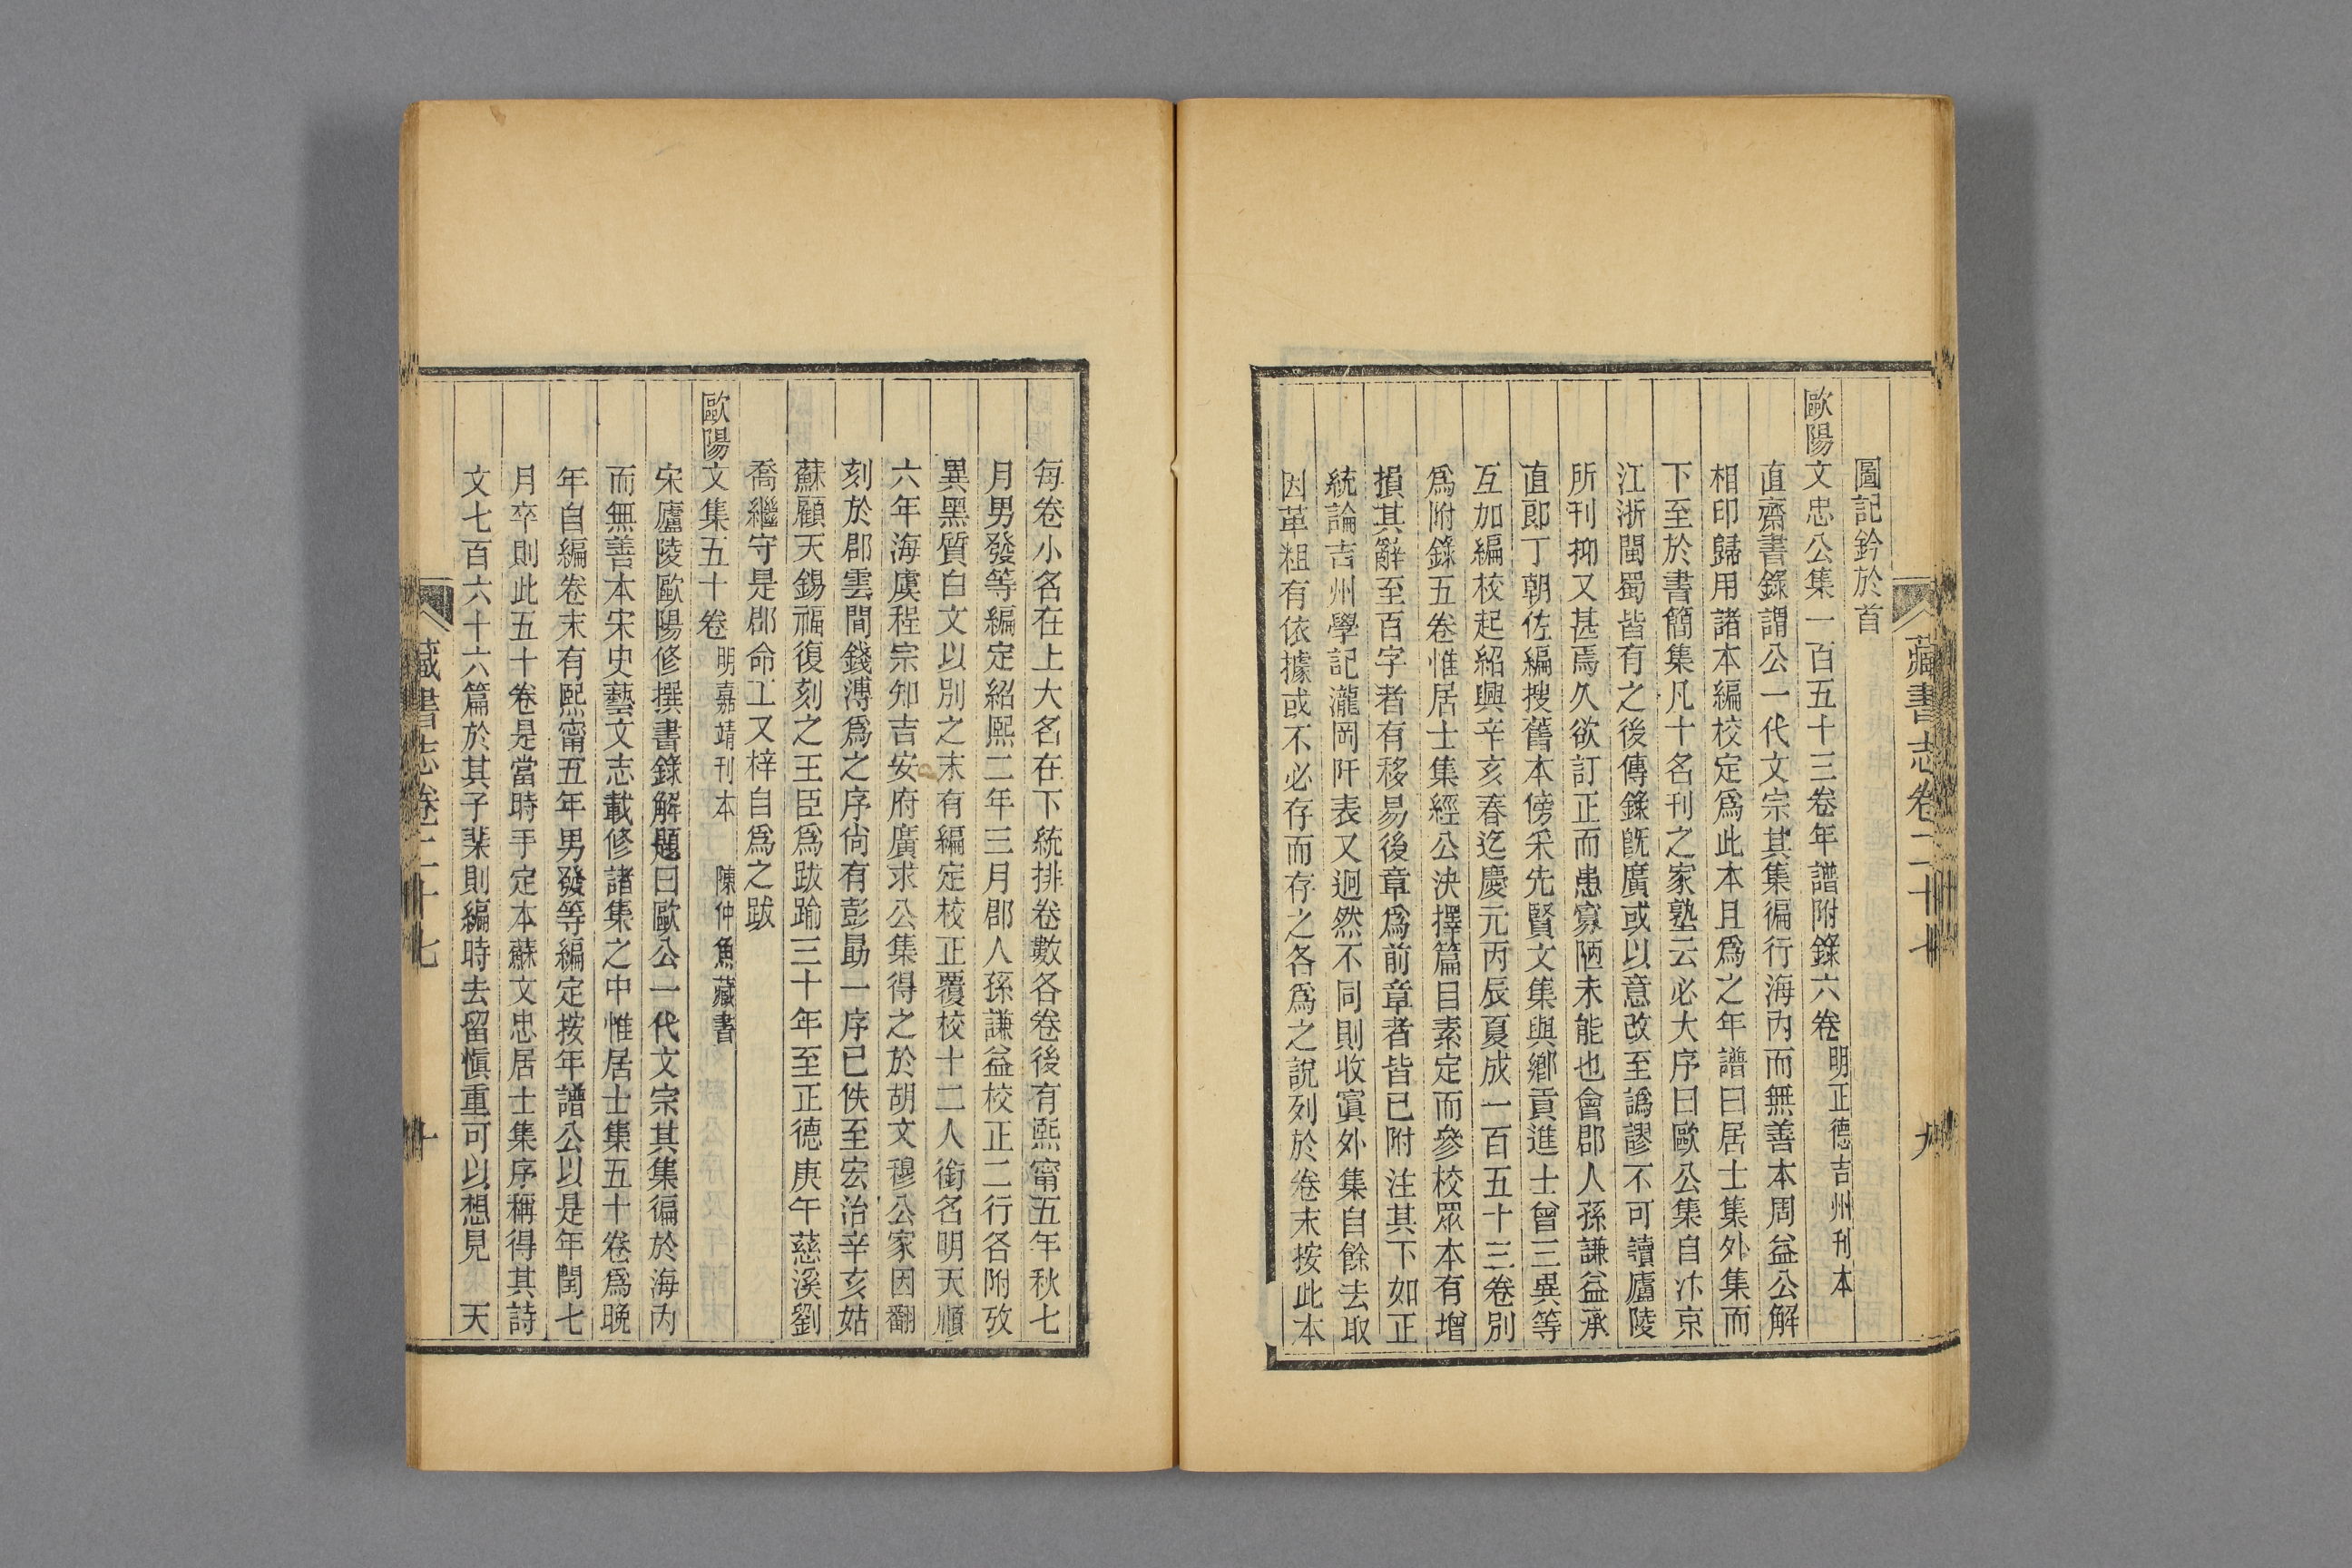 藏書志卷二十七
九
圖記鈐於首
歐陽文忠公集一百五十三卷年譜附錄六卷明正德吉州刊本
直齋書錄謂公一代文宗其集徧行海內而無善本周益公解
相印歸用諸本編校定爲此本且爲之年譜曰居士集外集而
下至於書簡集凡十名刊之家塾云必大序曰歐公集自汴京
江浙閩蜀皆有之後傳錄旣廣或以意改至譌謬不可讀廬陵
所刊抑又甚焉久欲訂正而患寡陋未能也會郡人孫謙益承
直郎丁朝佐編搜舊本傍采先賢文集與鄉貢進士曾三異等
互加編校起紹興辛亥春迄慶元丙辰夏成一百五十三卷別
爲附錄五卷惟居士集經公決擇篇目素定而參校眾本有增
損其辭至百字者有移易後章爲前章者皆已附注其下如正
統論吉州學記瀧岡阡表又迥然不同則收寘外集自餘去取
因革粗有依據或不必存而存之各爲之說列於卷末按此本
每卷小名在上大名在下統排卷數各卷後有熙甯五年秋七
月男發等編定紹熙二年三月郡人孫謙益校正二行各附攷
異黑質白文以別之末有編定校正覆校十二人銜名明天順
六年海虞程宗知吉安府廣求公集得之於胡文穆公家因翻
刻於郡雲間錢溥爲之序尙有彭勗一序已佚至宏治辛亥姑
蘇顧天錫福復刻之王臣爲跋踰三十年至正德庚午慈溪劉
喬繼守是郡命工又梓自爲之跋
歐陽文集五十卷明嘉靖刊本 陳仲魚藏書
宋廬陵歐陽修撰書錄解題曰歐公一代文宗其集徧於海內
而無善本宋史藝文志載修諸集之中惟居士集五十卷爲晚
年自編卷末有熙甯五年男發等編定按年譜公以是年閏七
月卒則此五十卷是當時手定本蘇文忠居士集序稱得其詩
文七百六十六篇於其子棐則編時去留愼重可以想見 天
藏書志卷二十七
十